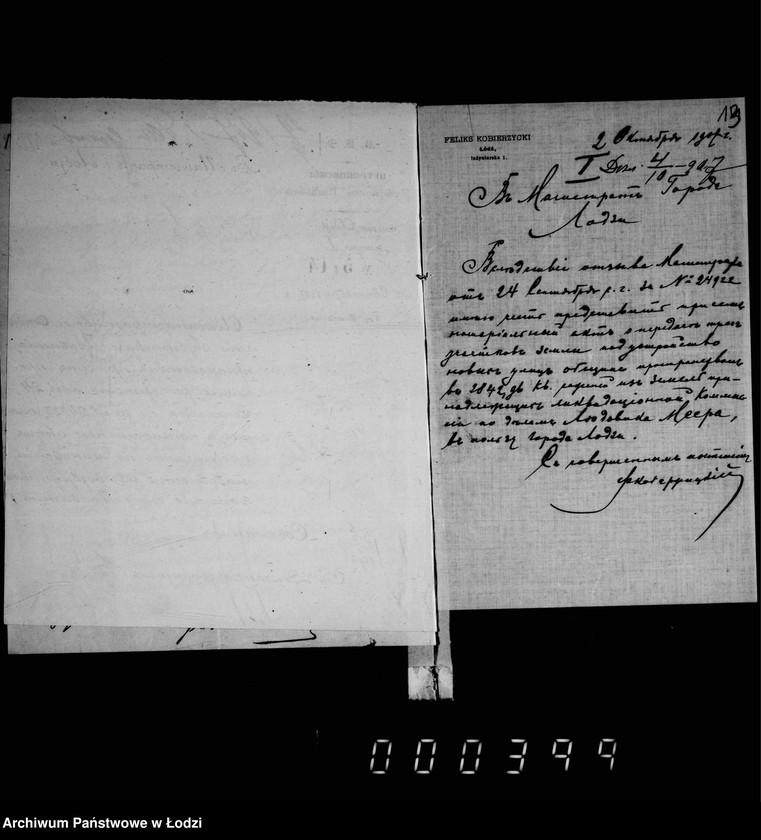 13
FELIKS KOBIERZYCKI
Łódź,
Inżynierska 1.
2 Октября 1907 г.
I Дѣл. 4/10 - 907
Въ Магистратъ Города
Лодзи
Вслѣдствіе отзыва Магистрата
отъ 24 Сентября с. г. за № 24922
имѣю честь представить при семъ
нотаріальный актъ о передачѣ трехъ
участковъ земли подъ устройство
новыхъ улицъ общимъ пространствомъ
въ 2842, кв. изъ земель при-
надлежащихъ ликвидаціонной Коммис-
сіи по дѣламъ Людовика Меера,
въ пользу города Лодзи.
Съ совершеннымъ почтеніемъ
Ф Кобержицкій
000399
Archiwum Państwowe w Łodzi